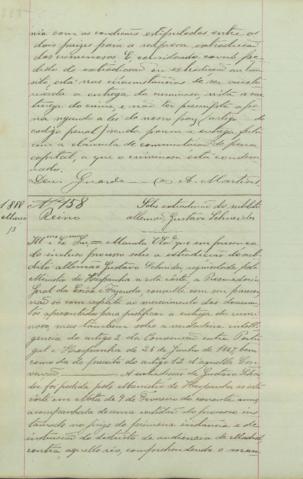 nia com as condições estipuladas entre os
dois paizes para a reciproca extradicção
dos criminosos. E, entendendo 
dido de extradicção 
 esta nas circumstancias de ser 
 a entrega do criminoso, visto a na-
tureza do crime, e não ter prescripto a 
 segundo a lei do nosso paiz, 
codigo penal, 
com a clausula de commutação da pena
capital, a que o criminoso está conde-
nado.
Deus Guarde — A. Martins
1888
Março
13
Nº 158
Reino
Sobre extradicção do subdito
allemão Gustavo Schneider
Ill.mo e Ex.mo Snr. = Manda V. Ex.ª que em presença
do incluso processo sobre a extradicção do sub-
dito allemão Gustavo Schneider, requisitada pelo
Ministro de Hespanha n'esta côrte, a Procuradoria
Geral da Corôa e Fazenda consulte com seu parecer,
não só com respeito ao merecimento dos documen-
tos apresentados para justificar a entrega do crimi-
noso, mas tambem sobre a verdadeira intelli-
gencia do artigo 2 da Convenção entre Portu-
gal e Hespanha de 25 de Junho de 1867, bem
como da do preceito do artigo 12 d'aquella Con-
venção. — A extradicção de Gustavo Schnei-
der foi pedida pelo Ministro de Hespanha n'esta
côrte em Nota de 9 de Fevereiro do corrente anno,
acompanhada de uma certidão do processo ins-
taurado no juizo de primeira instancia e de
instrucção do districto de audiencia de Madrid,
contra aquelle reo, comprehendendo o man-